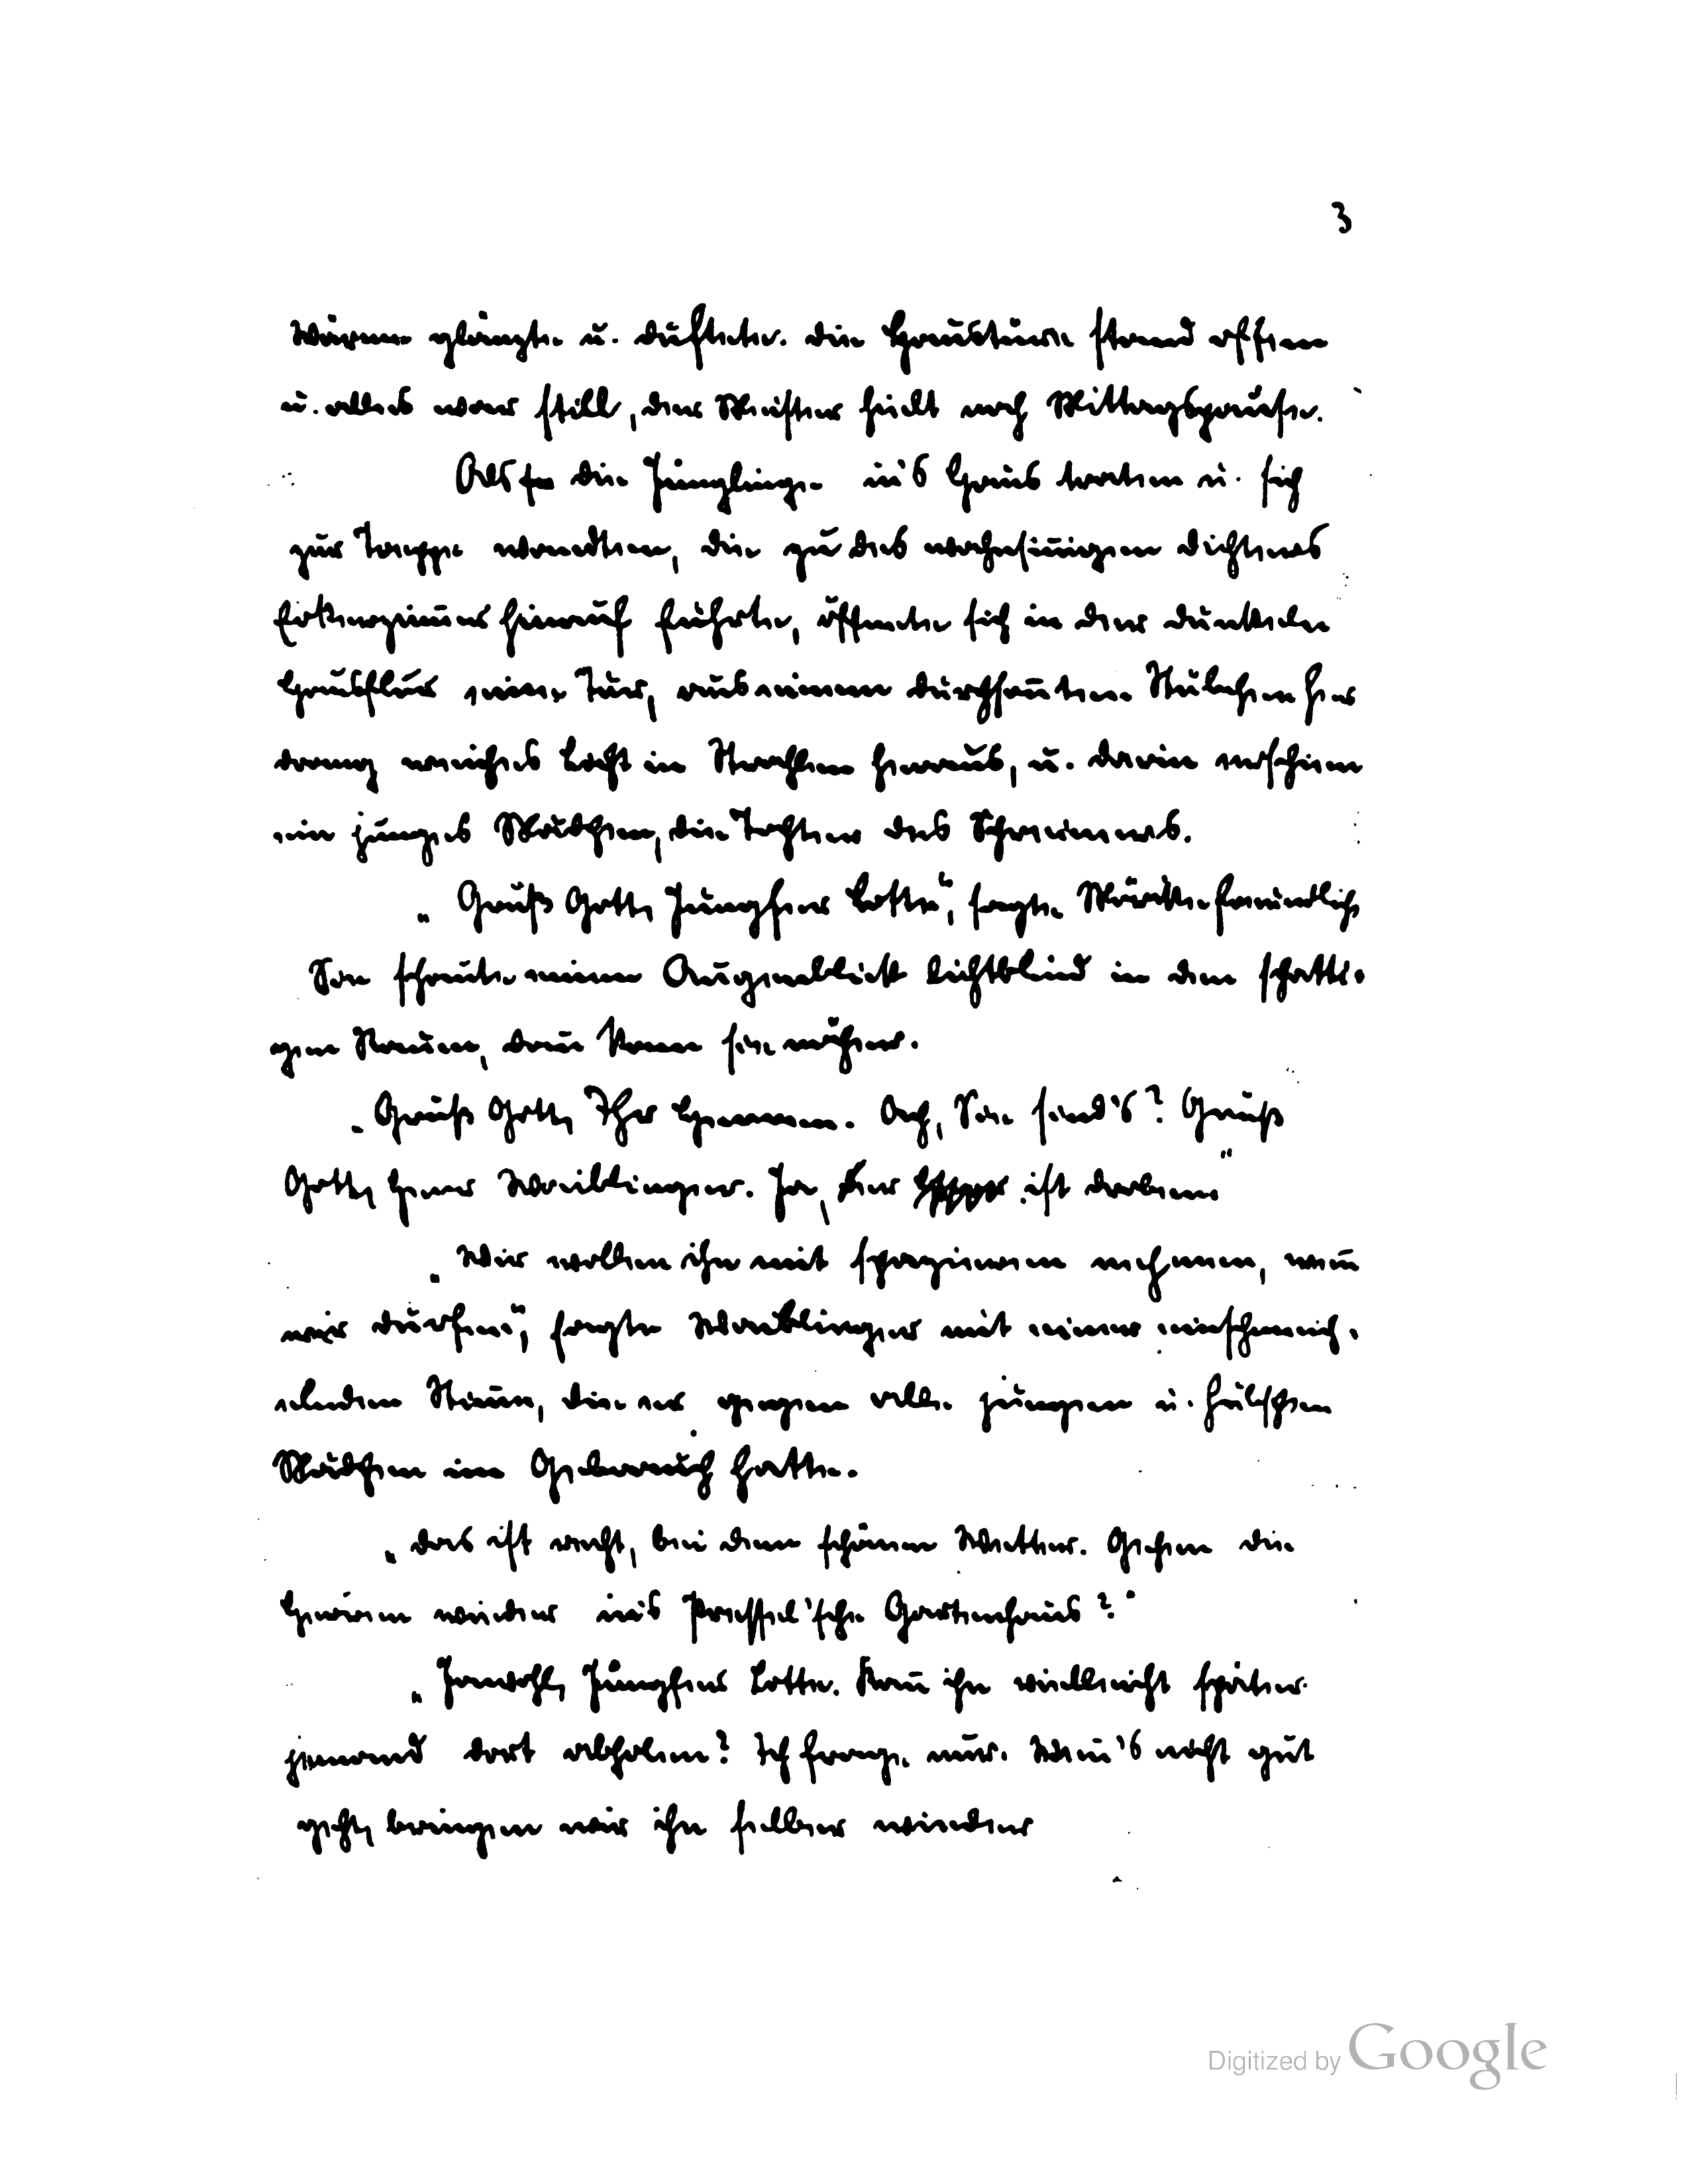 3
Wärme glänzte u. duftete. Die Haustüre stand offen
u. alles war still, der Meister hielt noch Mittagspause.
Als die Jünglinge in's Haus traten u. sich
zur Treppe wendten, die zu des wahnsin̄igen Dichters
Erkerzim̄er hinauf führte, öffnete sich in der dunkeln
Hausflur eine Tür, aus einem durchson̄ten Stübchen her
drang weiches Licht in Strahlen heraus, u. darin erschien
ein junges Mädchen, die Tochter des Schreiners.
„Grüß Gott, Jungfer Lotte", sagte Mörike freundlich
Sie schaute einen Augenblick lichtblind in den schatti-
gen Raum, dan̄ kam sie näher.
„Grüß Gott, Ihr Herren. Ach, Sie sind's? Grüß
Gott, Herr Waiblinger. Ja, er ist droben"
„Wir wollen ihn mit spazieren nehmen, wen̄
wir dürfen", sagte Waiblinger mit einer einschmeich-
elnden Stim̄e, die er gegen alle jungen u. hübschen
Mädchen im Gebrauch hatte.
„Das ist recht, bei dem schönen Wetter. Gehen die
Herren wieder in's Pressel'sche Gartenhaus?"
„Jawohl, Jungfer Lotte. Kan̄ ihn vielleicht später
jemand dort abholen? Ich frage nur. Wen̄'s nicht gut
geht, bringen wir ihn selber wieder
Digitized by Google